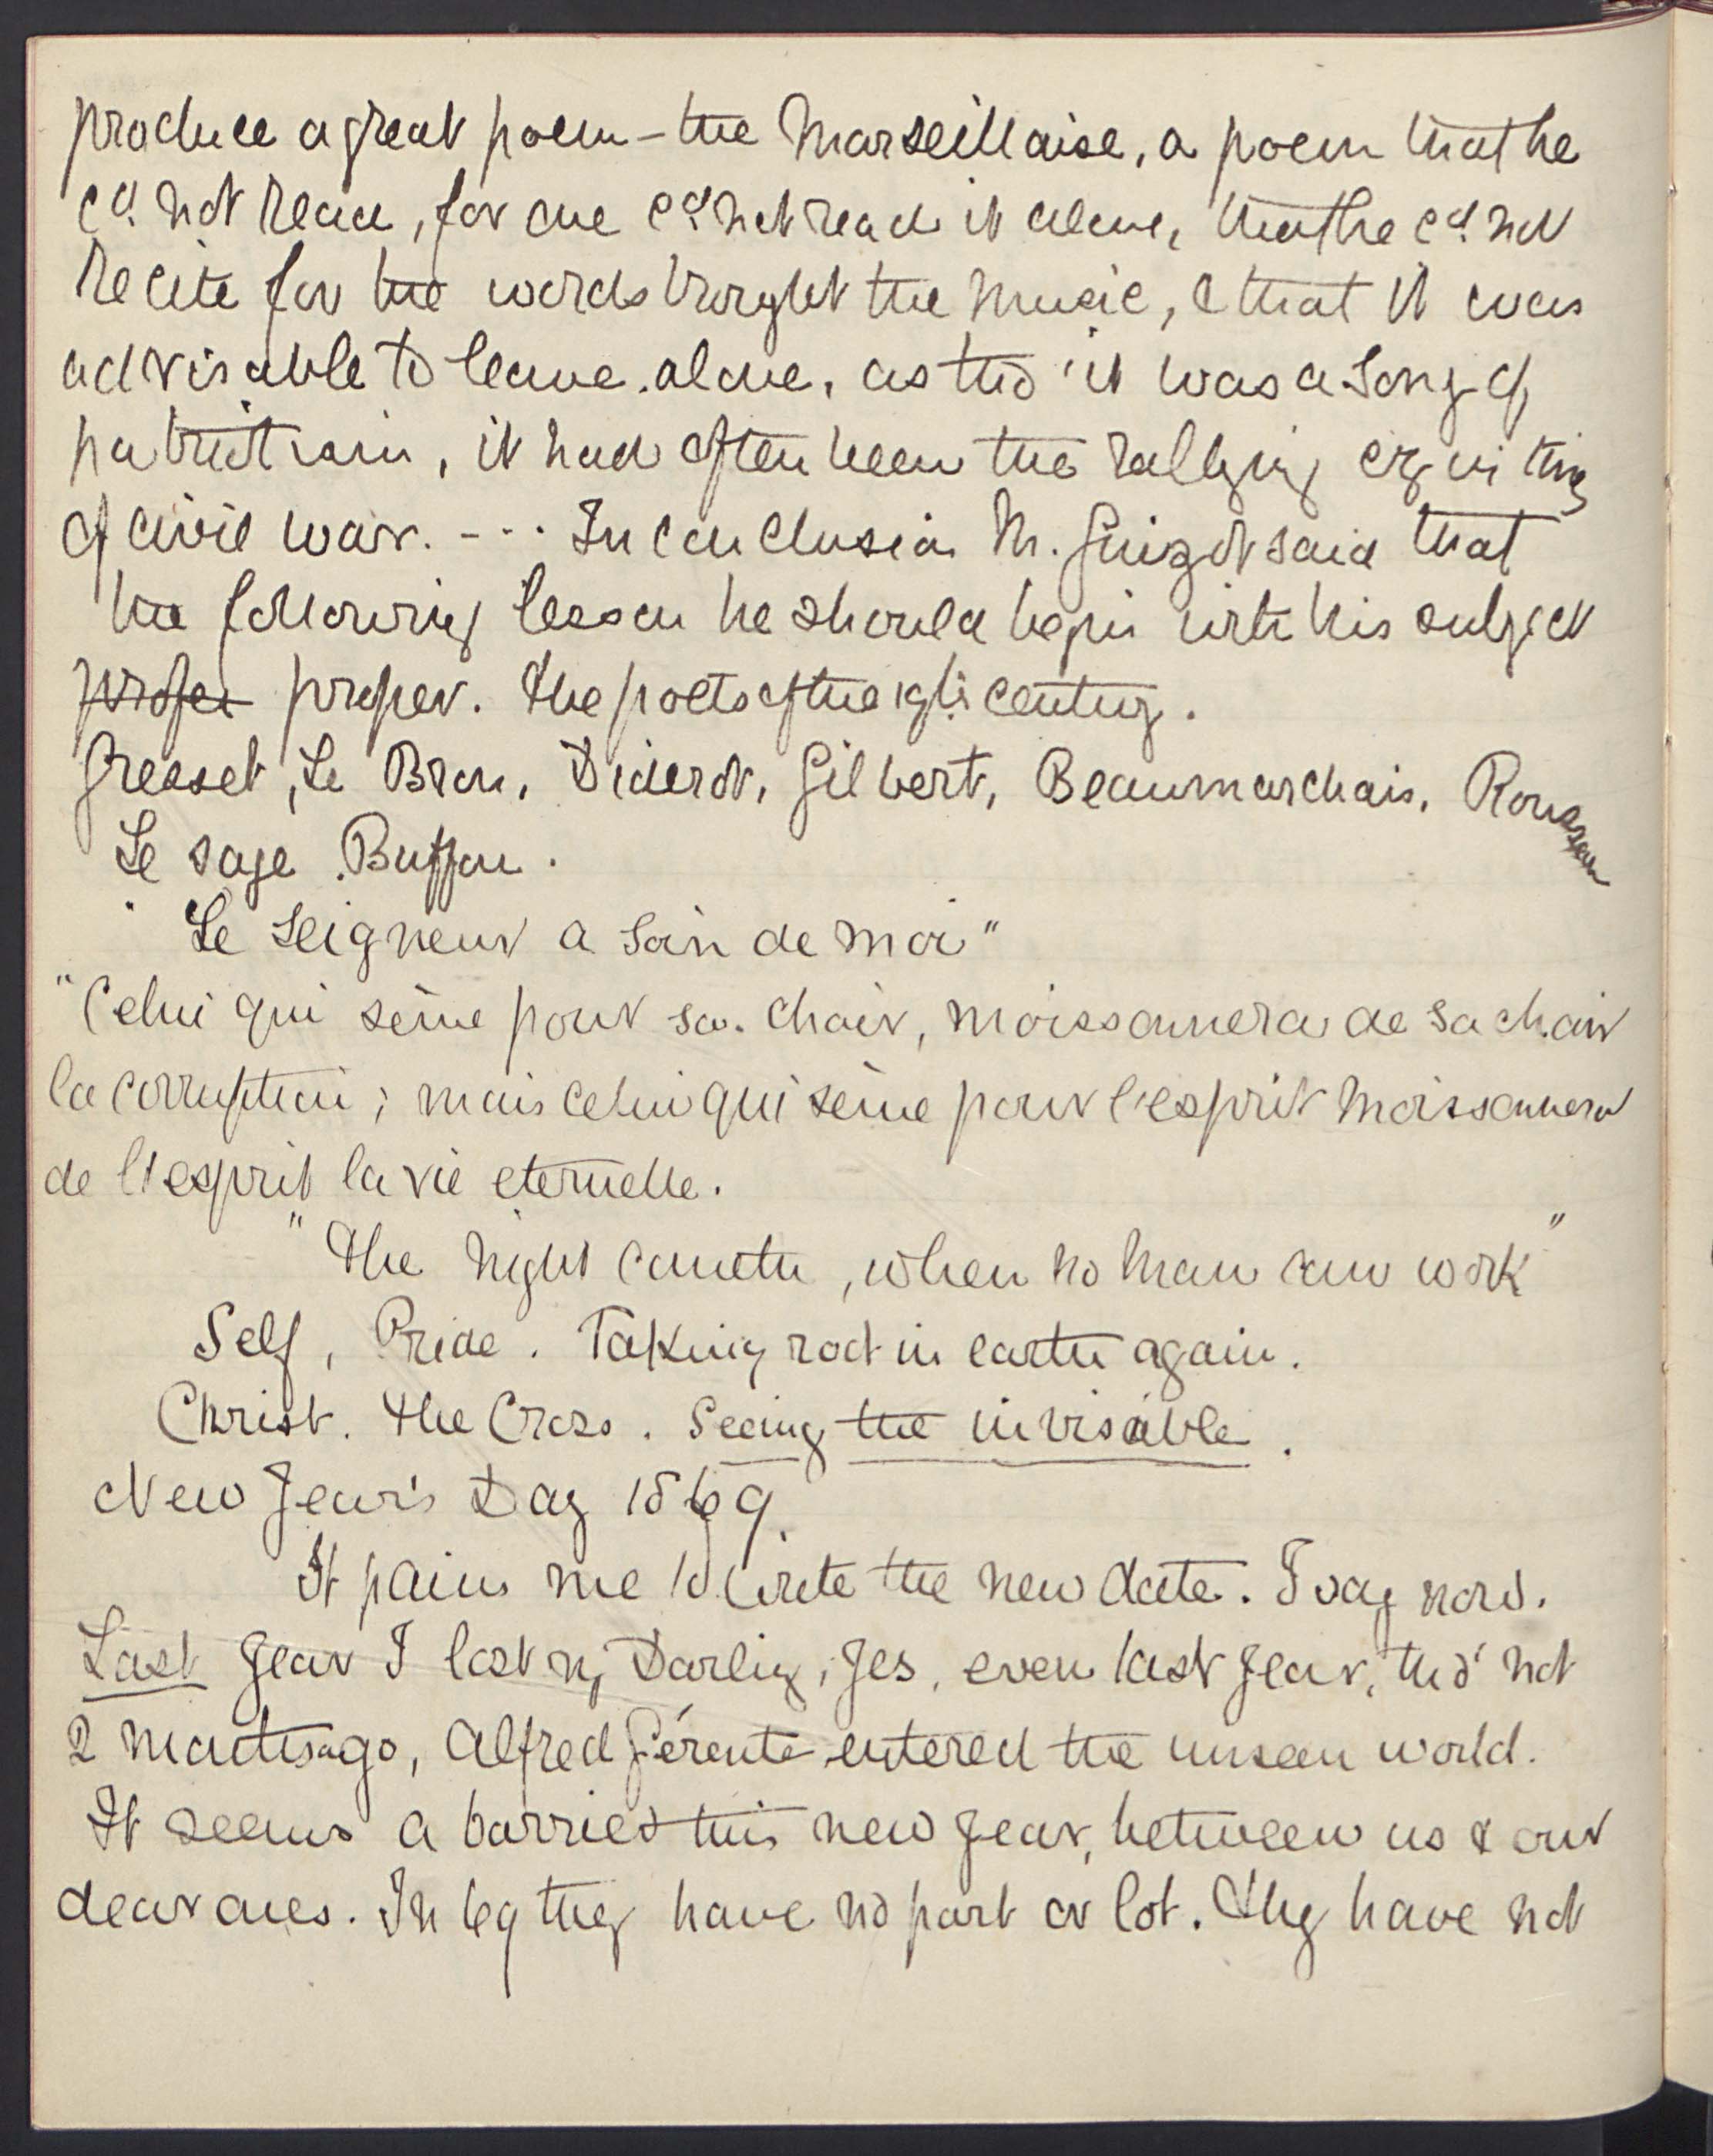 produce a great poem - the Marseillaise, a poem that he
cd. not read, for one cd. not read it alone, that he cd. not
recite for the words brought the music, & that it was
advisable to leave alone, as tho' it was a song of
patriotism, it had often been the rallying cry in time
of civil war. - - - In conclusion M. Guizot said that
the following lesson he should begin with his subject
proper proper. The poets of the 19th century.
Gresset, Le Brun, Diderot, Gilbert, Beaumarchais, Rousseau
Le sage. Buffon.
"Le Seigneur a soin de moi"
"Celui qui sème pour sa chair, moissonnera de sa chair
la corruption; mais celui qui sème pour l'esprit moissonnera
de l'esprit la vie eternelle.
"The night cometh, when no man can work"
Self, Pride. Taking root in earth again.
Christ. The Cross. Seeing the invisible.
New Year's Day 1869.
It pains me to write the new date. I say now.
Last year I lost my Darling, yes, even last year, tho' not
2 months ago, Alfred Gérente entered the unseen world.
It seems a barrier this new year, between us & our
dear ones. In 69 they have no part or lot. They have not